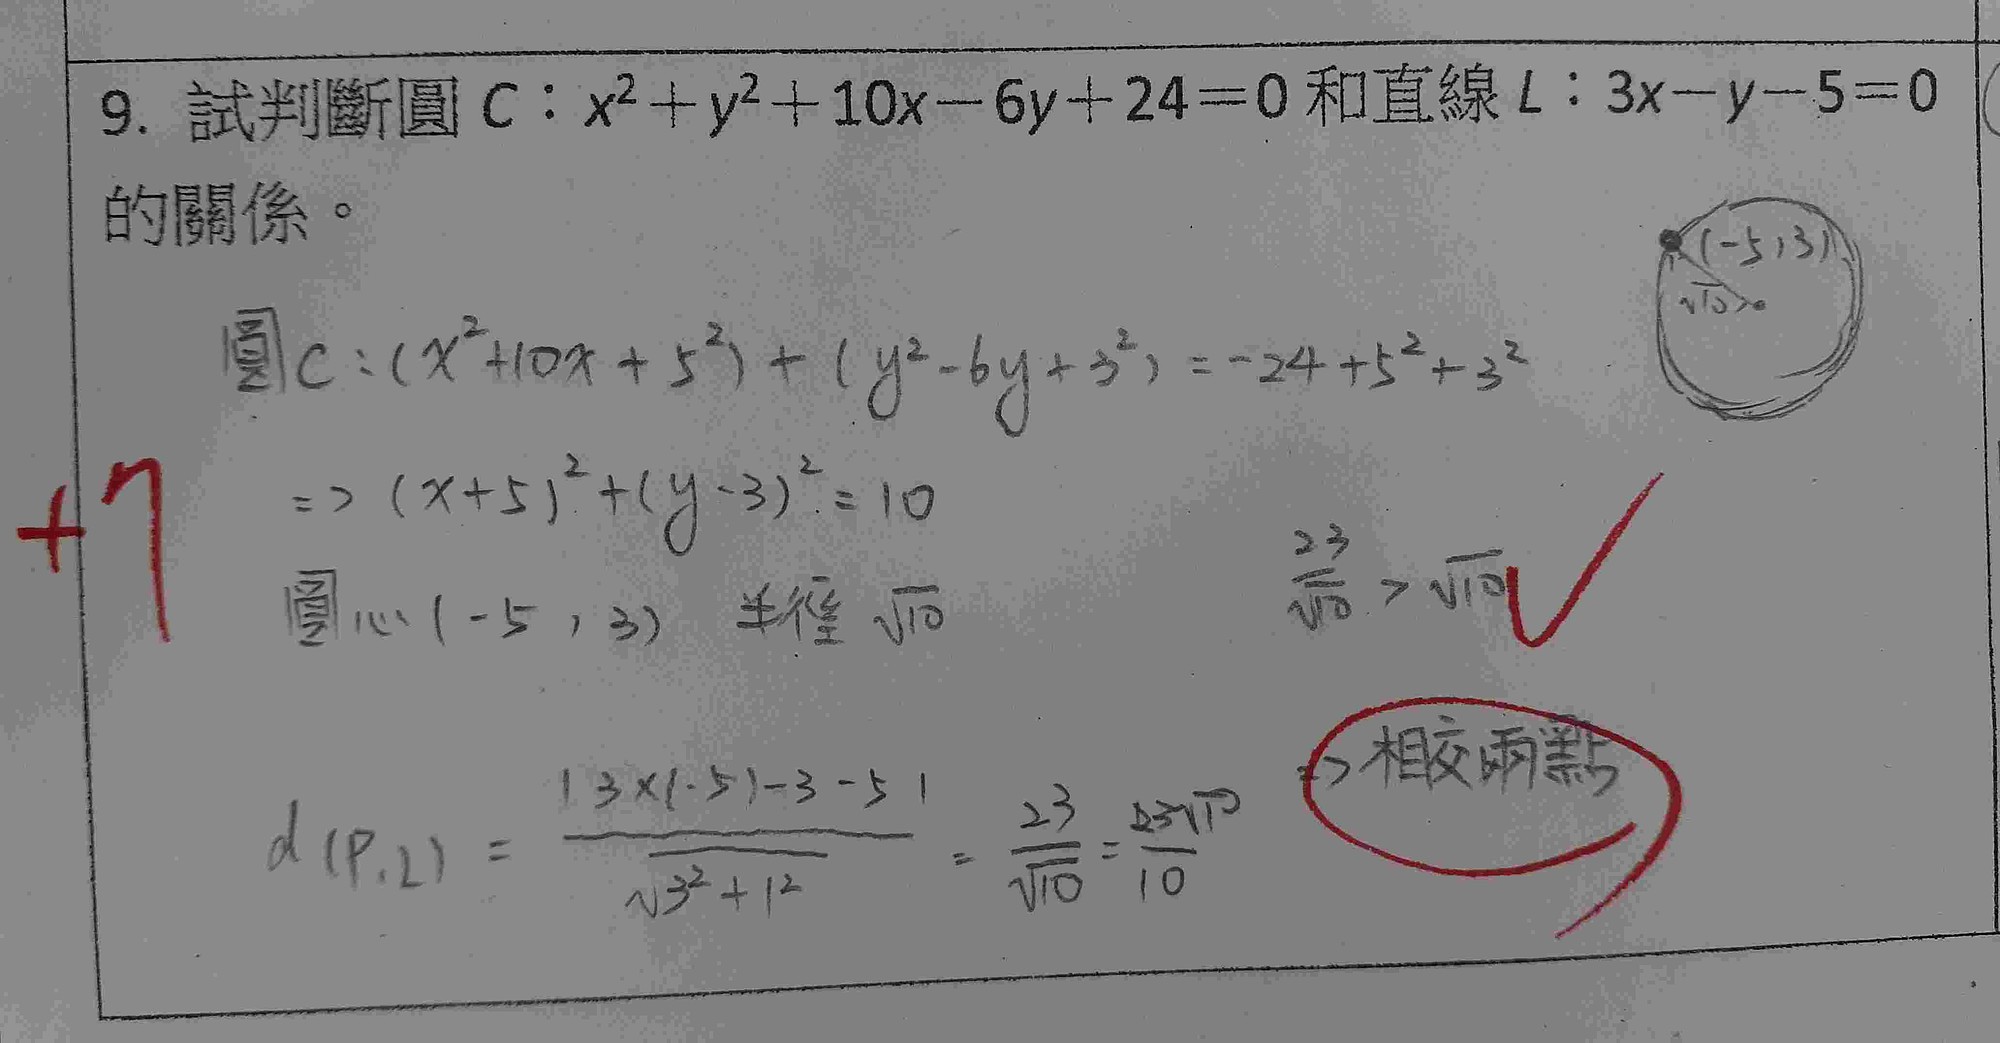 9. 試判斷圓 C：x²＋y²＋10x－6y＋24＝0 和直線 L：3x－y－5＝0
的關係。
(-5,3)
√10
圓C:(x²+10x+5²)+(y²-6y+3²)=-24+5²+3²
+7
=>(x+5)²+(y-3)²=10
圓心(-5,3) 半徑√10
23/√10 > √10
=>相交兩點
d(P,L)=|3×(-5)-3-5|/√3²+1²=23/√10=23√10/10